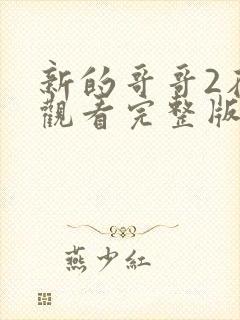 新的哥哥2
觀看完整版
燕少紅